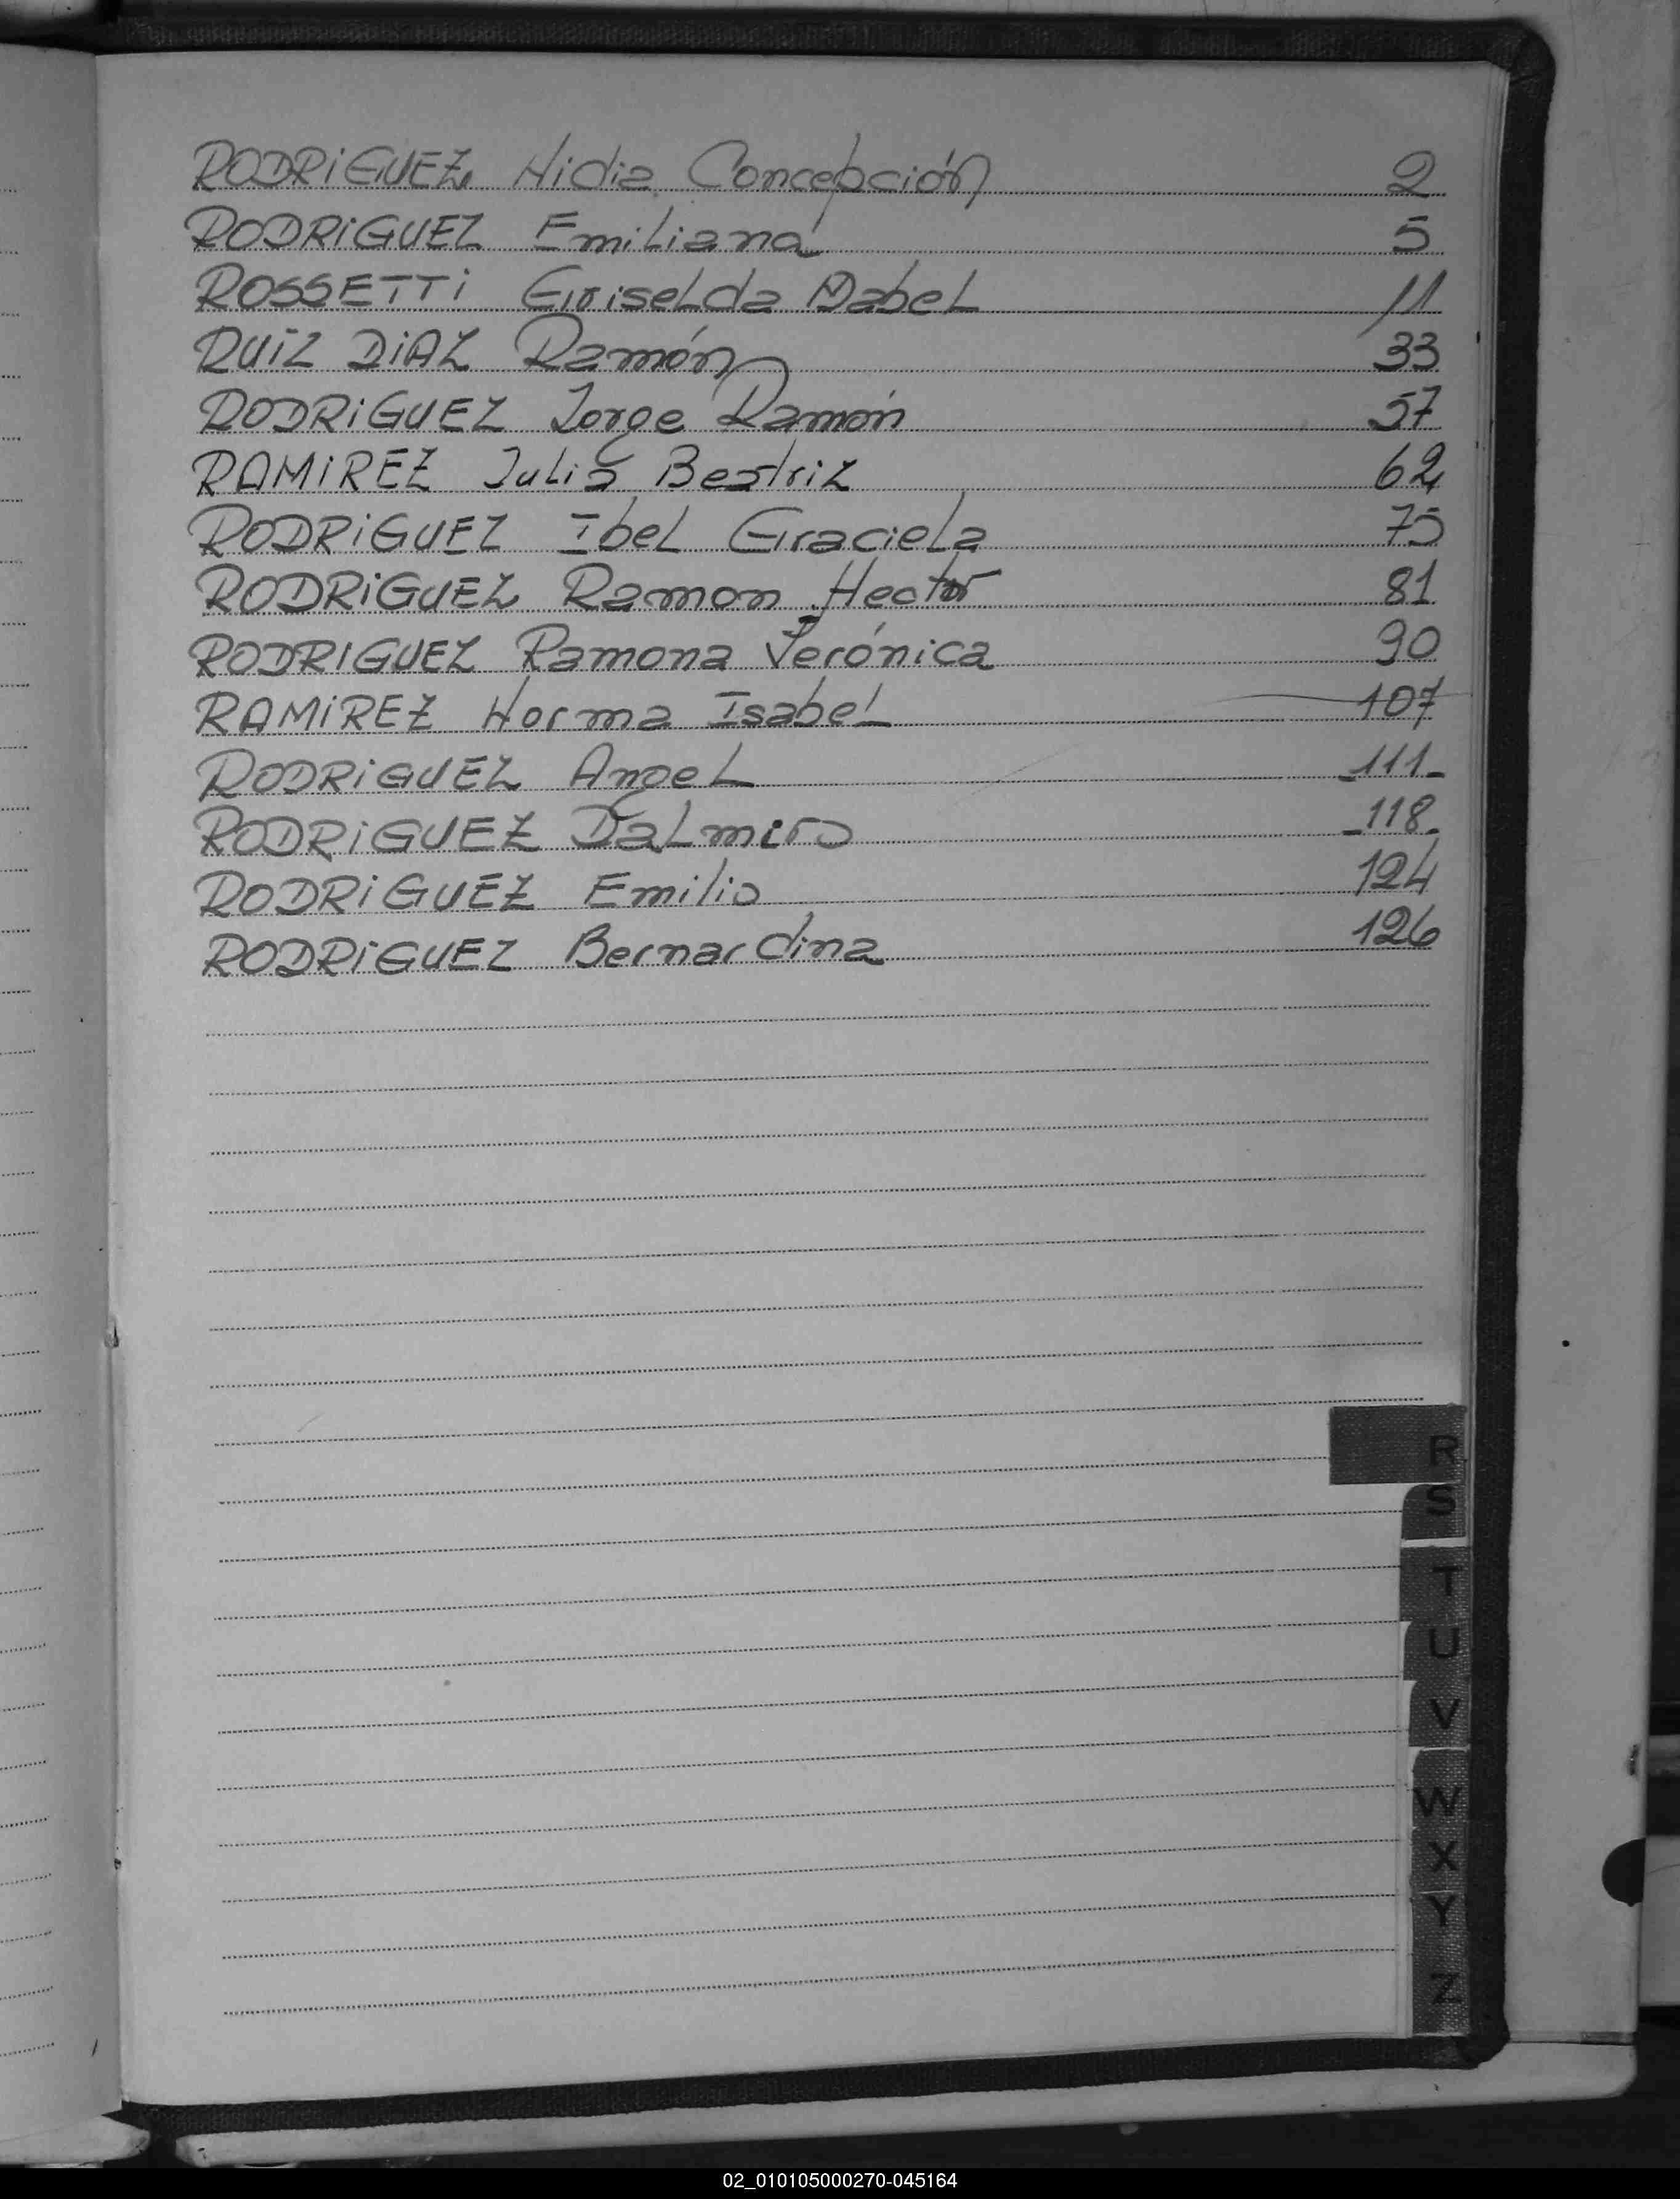 RODRIGUEZ Nidia Concepción 2
RODRIGUEZ Emiliana 5
ROSSETTI Griselda Mabel 11
RUIZ DIAZ Ramón 33
RODRIGUEZ Jorge Ramón 57
RAMIREZ Julia Beatriz 62
RODRIGUEZ Ibel Graciela 75
RODRIGUEZ Ramon Hector 81
RODRIGUEZ Ramona Verónica 90
RAMIREZ Norma Isabel 107
RODRIGUEZ Angel 111
RODRIGUEZ Dalmiro 118
RODRIGUEZ Emilio 124
RODRIGUEZ Bernardina 126
R
S
T
U
V
W
X
Y
Z
02_010105000270-045164